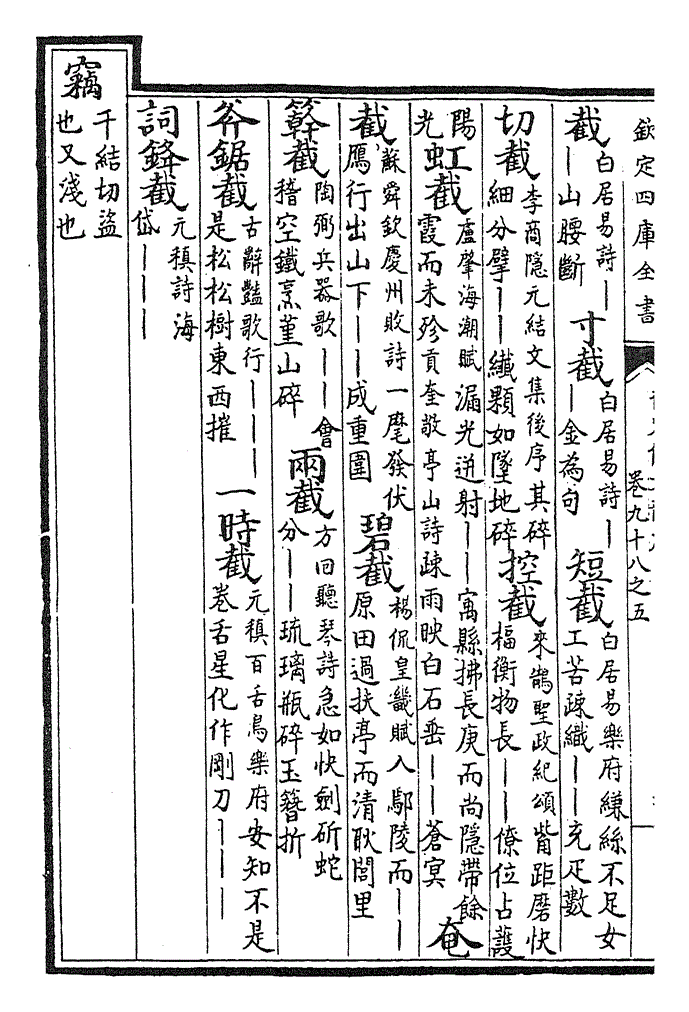 欽定四庫全書
卷九十八之五
截白居易詩—
—山腰斷
寸截白居易詩—
—金為句
短截白居易樂府縑絲不足女
工苦疎織——充疋數
切截李商隱元結文集後序其碎
細分擘——纖顆如墜地碎
控截來鵠聖政紀頌觜距磨快
楅衡物長——僚位占護
陽
光
虹截盧肇海潮賦漏光迸射——寓縣拂長庚而尚隱帶餘
霞而未殄貢奎敬亭山詩疎雨映白石垂——蒼冥
奄
截蘇舜欽慶州敗詩一麾發伏
鴈行出山下——成重圍
碧截楊侃皇畿賦入鄢陵而——
原田過扶亭而清耿閭里
簳截陶弼兵器歌——會
稽空鐵烹堇山碎
兩截方回聽琴詩急如快劍斫蛇
分——琉璃瓶碎玉簪折
斧鋸截古辭豔歌行———
是松松樹東西摧
一時截元稹百舌鳥樂府安知不是
卷舌星化作剛刀———
詞鋒截元稹詩海
岱———
竊千結切盜
也又淺也